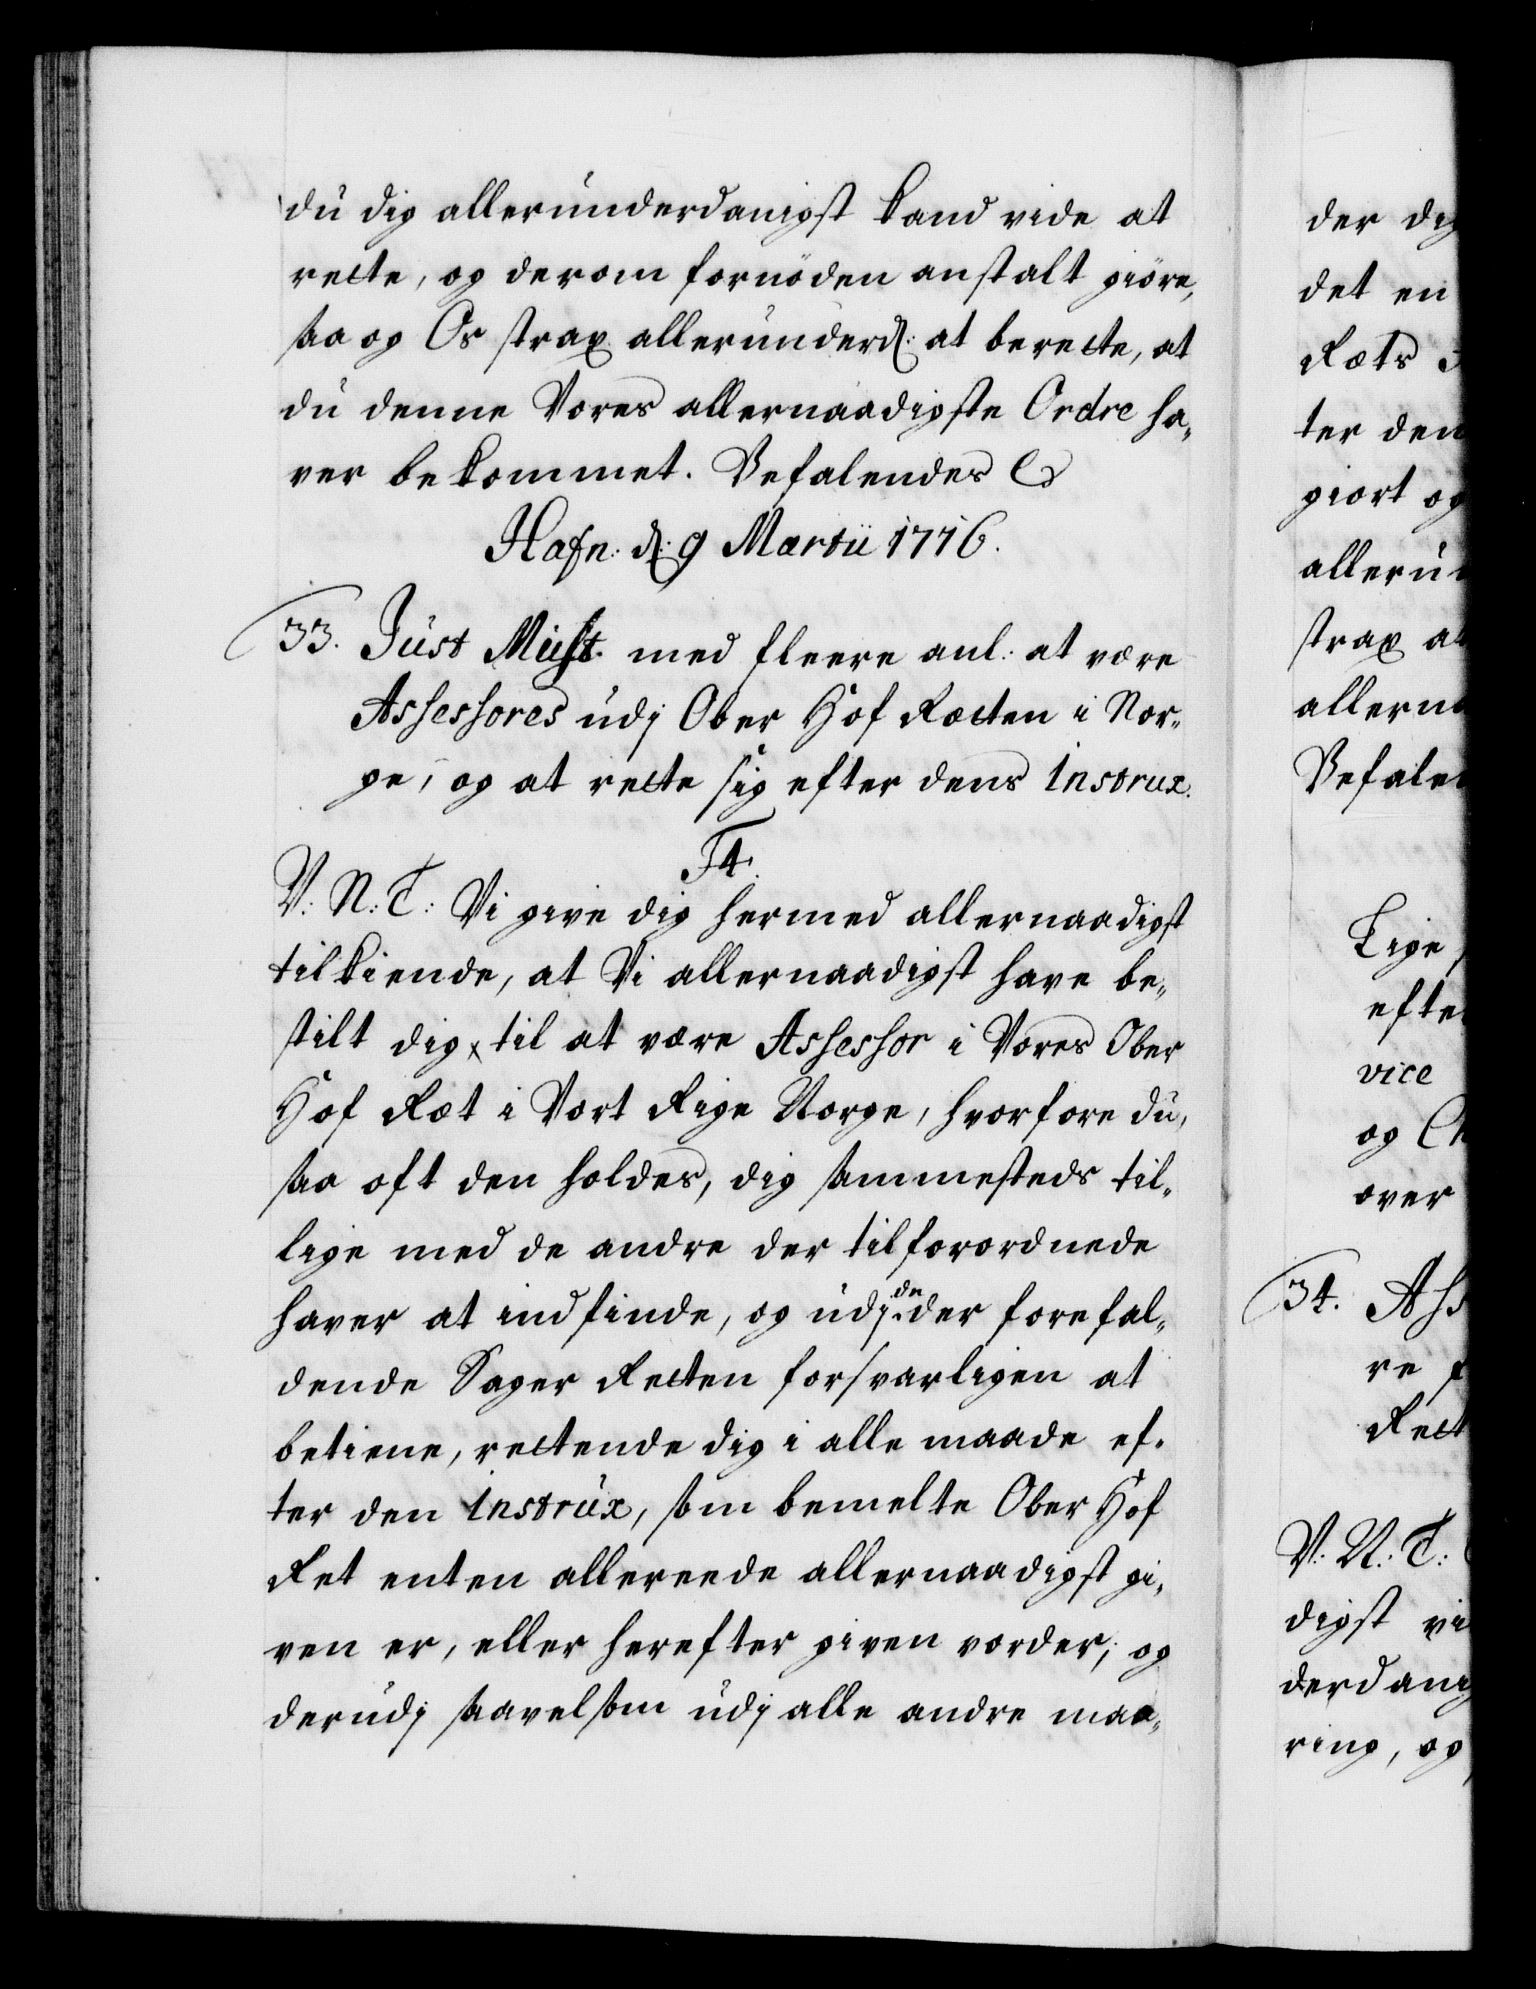 du dig allerunderdanigst kand vide at
rette, og derom fornöden anstalt giöre,
saa og Os strax allerunderd: at berette, at
du denne Vores allernaadigste Ordre ha„
ver bekommet. Befalendes &
Hafn: d: 9 Martii 1716.
33. Just Must med fleere anl: at være
Assessores udj Ober Hof Rætten i Nor„
ge, og at rette sig efter dens Instrux.
F4.
V: N: T: Vi give dig hermed allernaadigst
tilkiende, at Vi allernaadigst have be„
stilt dig til at være Assessor i Vores Ober
Hof Ræt i Vort Rige Norge, hvorfore du,
saa oft den holdes, dig sammesteds til„
lige med de andre der tilforordnede
haver at indfinde, og udj de der forefal„
dende Sager Retten forsvarligen at
betiene, rettende dig i alle maade ef„
ter den instrux, som bemelte Ober Hof
Ret enten allereede allernaadigst gi„
ven er, eller herefter given vorder; og
derudj saavelsom udj alle andre maa„
der dig
det en
Ræts
ter den
giort og
allerun
strax at
allerna
Befalen
Lige
efter
vice
og
over
34. Ass
re
Rett
V: N: T:
digst vi
derdanig
ring, og